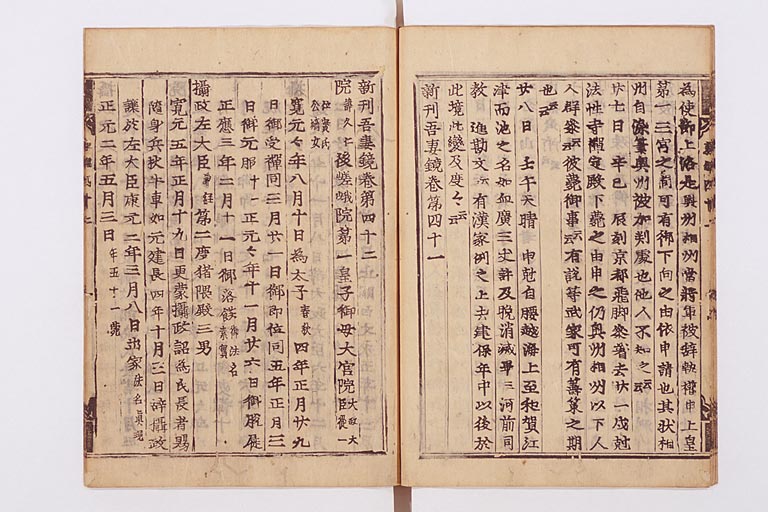 為使御上洛是奥州相州當將軍被辞執權申上皇
第一三宮之間可有御下向之由依申請也其状相
州自染筆奥州被加判畢他人不知之云云
廿七日辛巳辰刻京都飛脚参着去廿一戌尅
法性寺禅定殿下薨之由申之仍奥州相州以下人
人群参云云彼薨御事云云有説等武家可有籌策之期
也云云
廿八日壬午天晴 申尅自腰越海上至和賀江
津而池之名如血廣三丈許及晩消滅畢三河前司
教 進勘文云有漢家例之上去建保年中以後於
此境此變及度々云云
新刊吾妻鏡卷第四十一
新刊吾妻鏡卷第四十二
院 諱久仁 後嵯峨院第一皇子御母大宮院 大政大臣 一
公 女
寛元々年八月十日為太子 春秋 四年正月廿九
日御受禅同三月廿一日御即位同五年正月三
日御元服十一正元々年十一月廿六日御脱屣
正應三年二月十一日御落餝 御法名素實
攝政左大臣 兼經 第二度猪隈殿三男
寛元五年正月十九日更蒙攝政詔為氏長者賜
随身兵仗牛車如元建長四年十月三日辞攝政
讓於左大臣康元二年三月八日出家 法名真理
正元二年五月三日 年五十一 薨